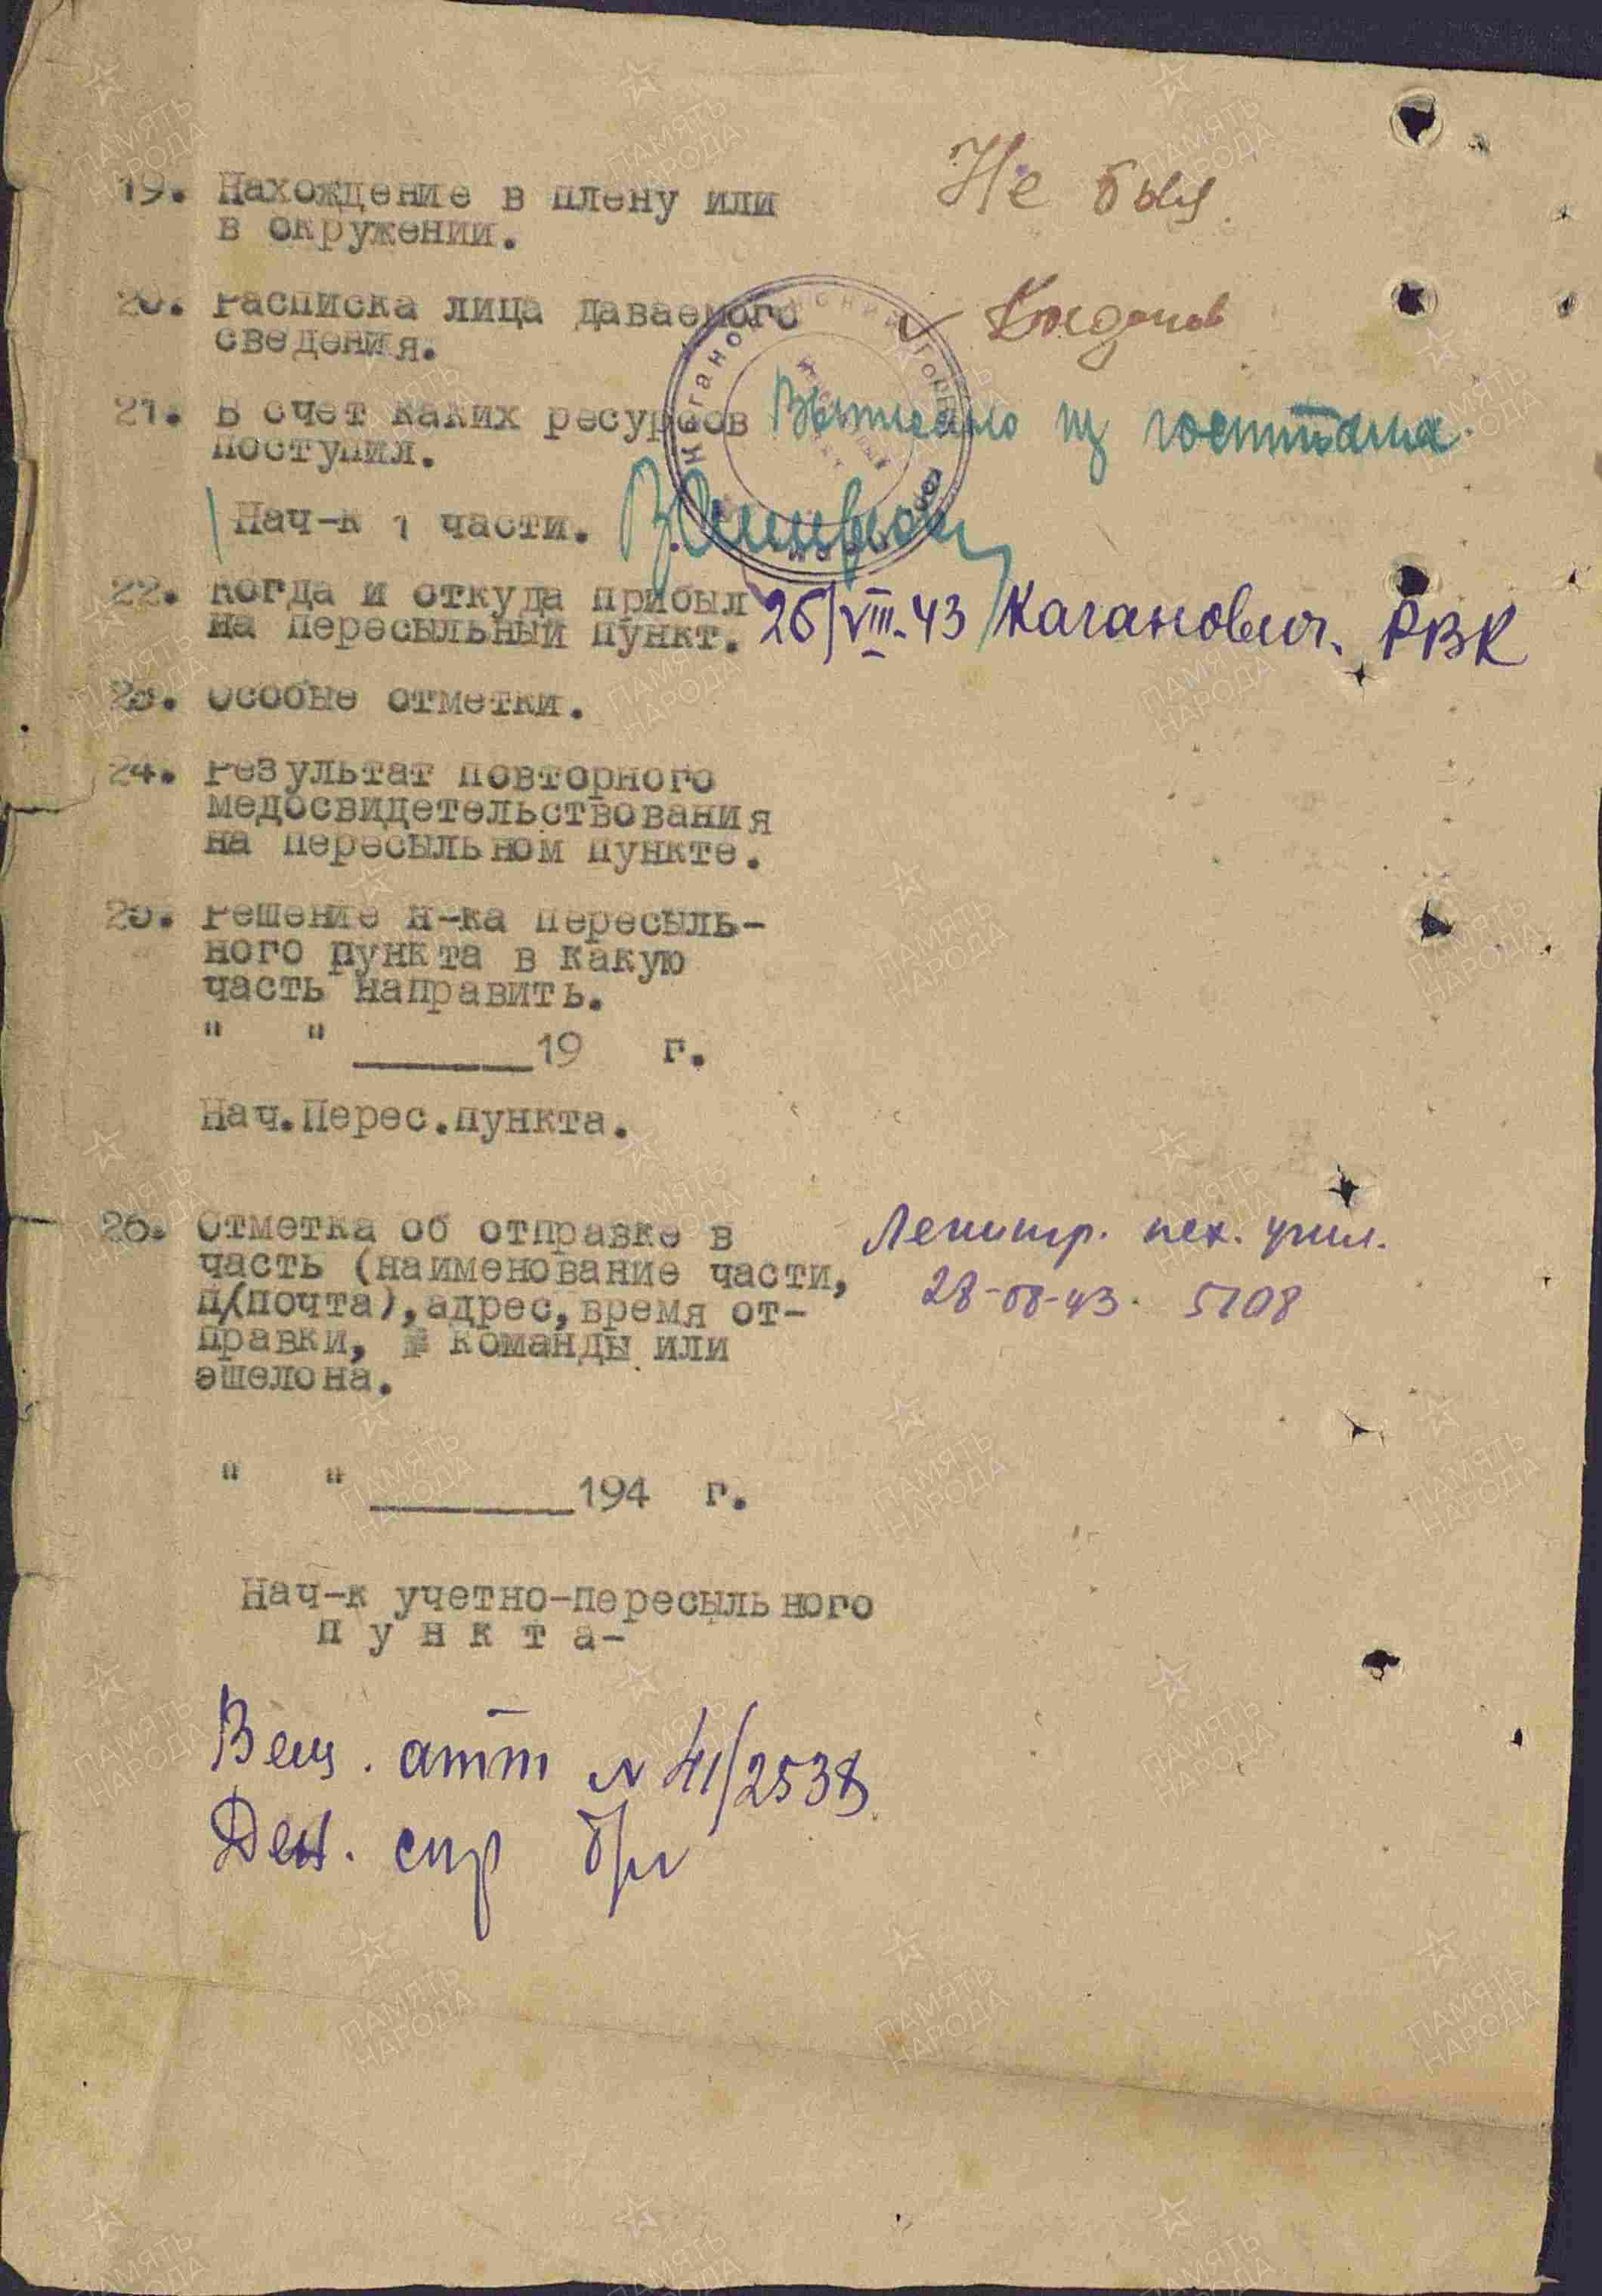 19. Нахождение в плену или Не был.
в окружении.
20. Расписка лица даваемого
сведения.
21. В счет каких ресурсов из госпиталя.
поступил.
Нач-к 1 части.
22. Когда и откуда прибыл 26/VIII-43 Каганович. РВК
на пересыльный пункт.
23. Особые отметки.
24. Результат повторного
медосвидетельствования
на пересыльном пункте.
25. Решение н-ка пересыль-
ного пункта в какую
часть направить.
" " ______19 г.
Нач.Перес.пункта.
26. Отметка об отправке в Ленингр. пех. учил.
часть (наименование части, 28-08-43. 5708
п/(почта), адрес, время от-
правки, № команды или
эшелона.
" " ______194 г.
Нач-к учетно-пересыльного
п у н к т а-
Вещ. атт № 41/2538
Ден. спр б/н
ПАМЯТЬ
НАРОДА